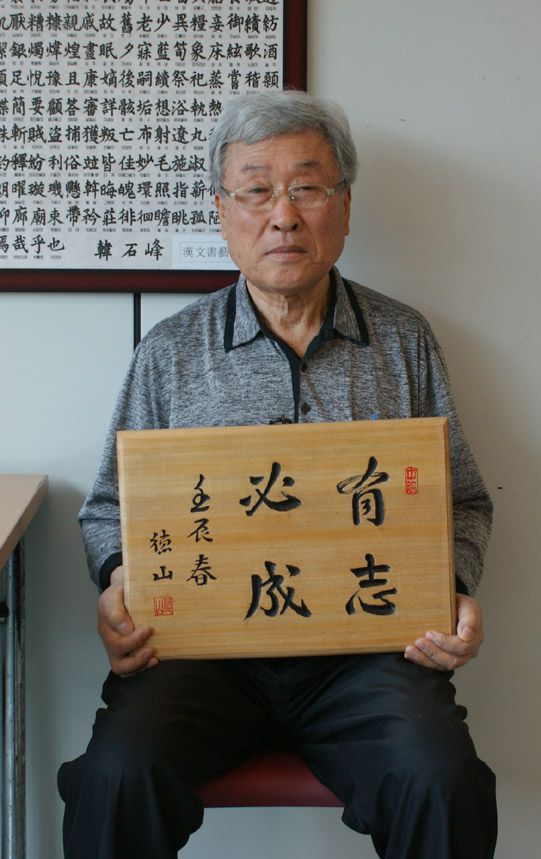 厭糟糠親戚故舊老少異糧妾御績紡
銀燭煒煌晝眠夕寐藍筍象床絃歌酒
足悅豫且康嫡後嗣續祭祀蒸嘗稽
簡要顧答審詳骸垢想浴執熱
斬賊盜捕獲叛亡布射遼丸
釋紛利俗竝皆佳妙毛施淑
曜璇璣懸斡晦魄環照指薪
廊廟束帶矜莊徘徊瞻眺孤陋
焉哉乎也 韓石峰
漢文書藝
有志
必成
壬辰春
德山